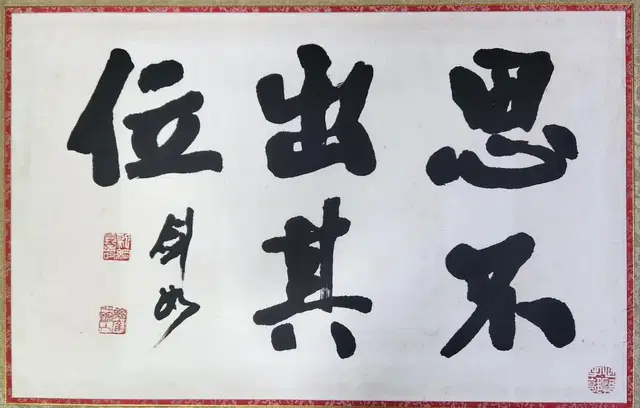 思不
出其
位
剑如